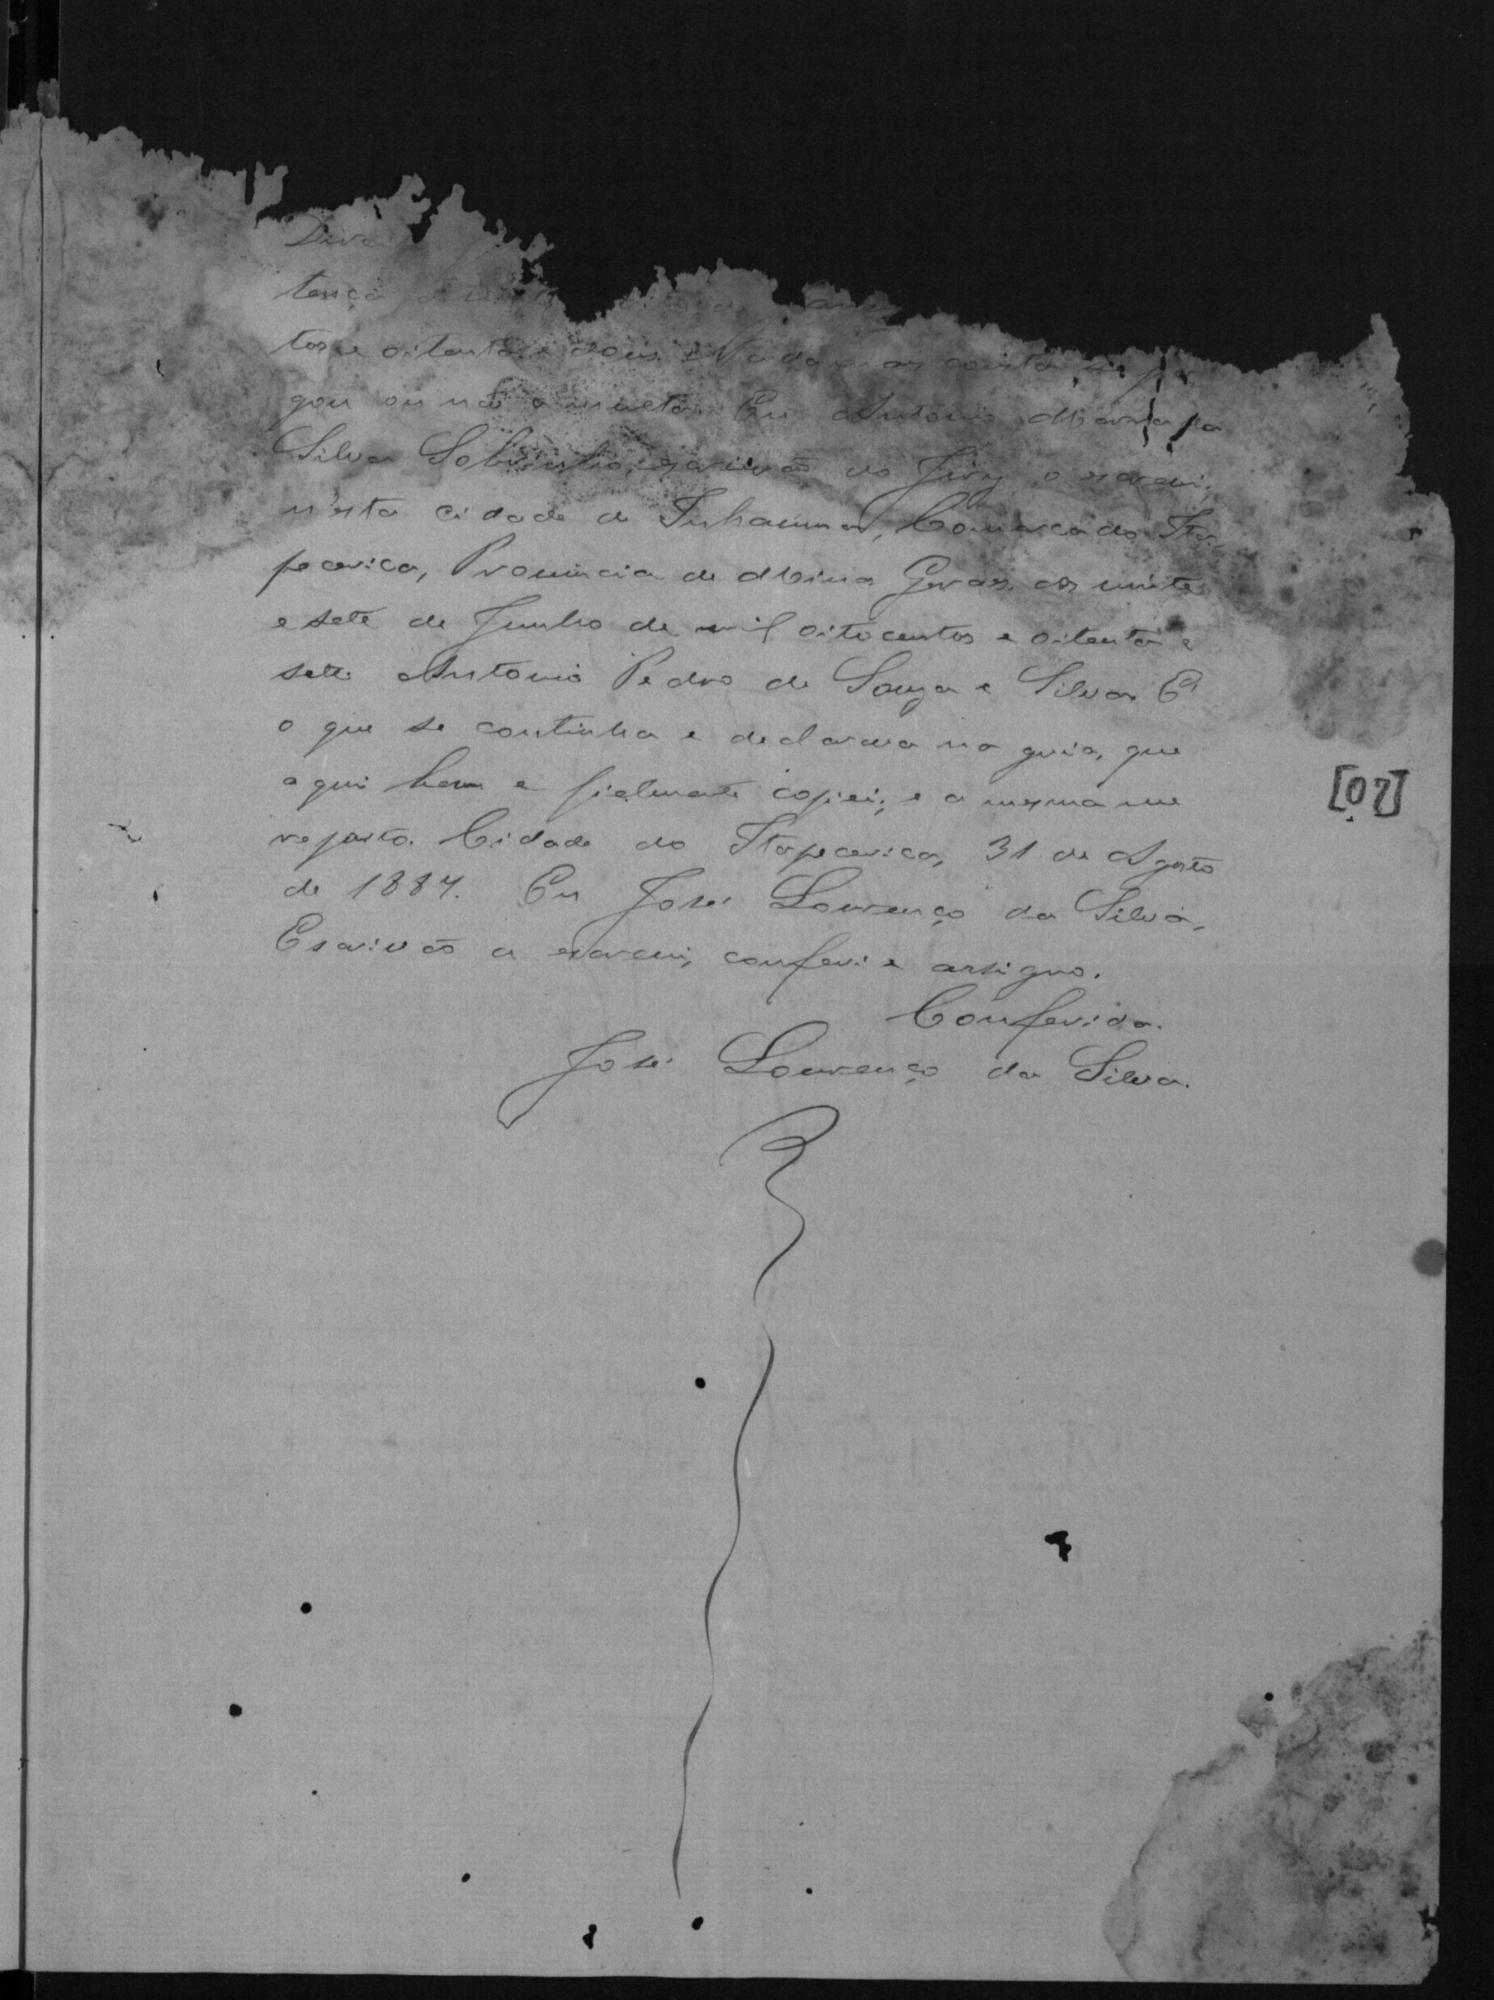 Dive
tença
tos e oitenta e dois. Nada as consta se pa
gou ou não a multa. Eu Antonio Maria da
Silva Sobrinho, escrivão do Jury o escrevi,
n'esta cidade de Inhauma, Comarca do Ita
pecerica, Provincia de Minas Geraes, aos vinte
e sete de Junho de mil oitocentos e oitenta e
sete. Antonio Pedro de Souza e Silva. É
o que se continha e declarava na guia, que
aqui bem e fielmente copiei; e a mesma me
reporto. Cidade do Itapecerica, 31 de Agosto
de 1887. Eu José Lourenço da Silva,
Escrivão a escrevi, conferi e assigno.
Conferida.
José Lourenço da Silva.
[07]